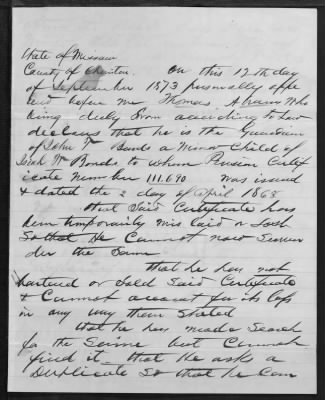 State of Missouri
County of Chariton. On this 12th day
of September 1873 personally appe
ared before me Thomas who
being duly sworn according to Law
declares that he is the Guardian
of John Bonds a Minor Child of
Bonds to whom Pension Certif
icate Number 111.690 was issued
& dated the 2 day of April 1868
that Said Certificate has
been temporarily mislaid or Lost
So that He Cannot now Surren
der the Same
that he has not
bartered or Sold Said Certificate
& Cannot account for its loss
in any way than Stated
that he has made Search
for the Same but Cannot
find it. that He asks a
Duplicate So that he Can